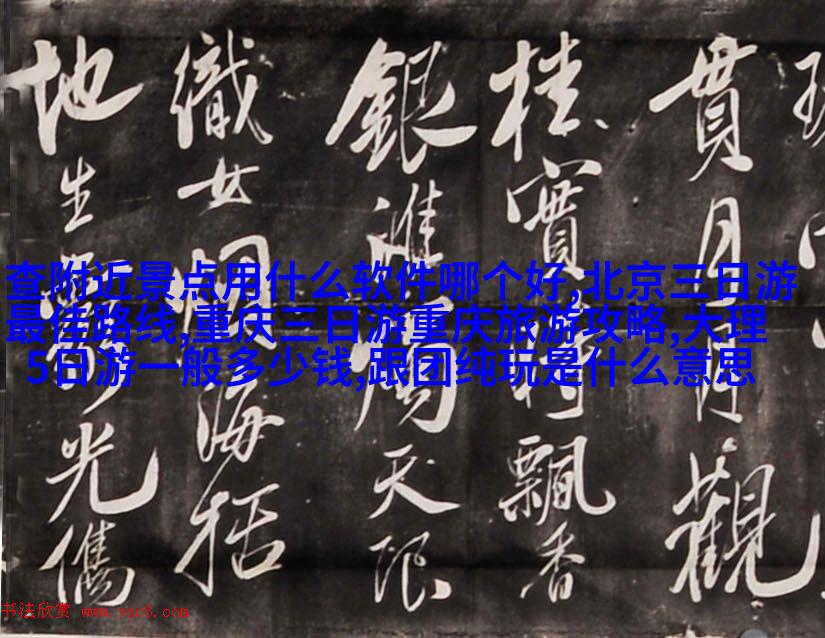 貫月觀
桂實飄香
銀天
織女海括
地生光儁
查附近景点用什么软件哪个好,北京三日游
最佳路线,重庆三日游重庆旅游攻略,大理
5日游一般多少钱,跟团纯玩是什么意思
书法欣赏 www.yac8.com